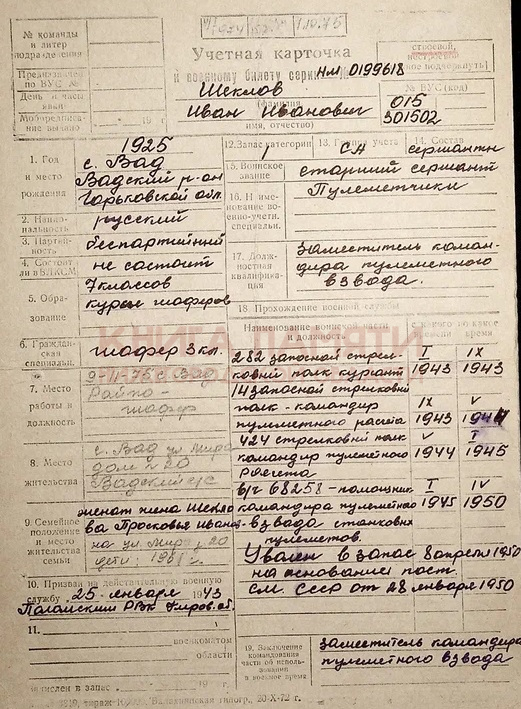 1.10.75
№ команды
и литер
подразделения
Предназначен
по ВУС №
День и часы
явки
Мобпредписание
вание выдано
19 г
Учетная карточка
к военному билету серии НМ № 0199618
строевой,
нестроевой
подчеркнуть)
№ ВУС (код)
Шеклов
(фамилия)
Иван Иванович
имя, отчество)
015
301502
1. Год
и место
рождения
1925
с. Вад
Вадский р-он
Горьковской обл.
2. Национальность
русский
3. Партийность
беспартийный
4. Состоит
ли в ВЛКСМ
не состоит
5. Образование
7 классов
курсы шоферов
6. Гражданская
специальн.
шофер 3 кл.
7. Место
работы и
должность
с. Вад
Райпо-
шофер
8. Место
жительства
с. Вад ул Мира
дом 20
Вадский
9. Семейное
положение
и место
жительства
семьи
женат жена Шекло
ва Просковья Иванов.
на ул. мира 20
дети:
10. Призван на действительную военную
службу 25 января 1943
РВК Киров. об.
11.
военкоматом
области
зачислен в запас
19 г.
12. Запас категории 1
13. Г учета СА
14. Состав
сержантн
15. Воинское
звание
старший сержант
16. Наименование военно-учетн.
специальн.
Пулеметчики
17. Должностная
квалификация
заместитель коман-
дира пулеметного
взвода.
18 Прохождение военной службы
Наименование воинской части
и должность
с какого
по какое
время
282 запасной стрел-
ковый полк курсант
I 1943
IX 1943
14 запасной стрелковый
полк - командир
пулеметного расчета
IX 1943
V 1944
424 стрелковый полк
командир пулеметного
расчета
V 1944
I 1945
в/ч 68258 - помощник
командира пулеметного
взвода станковых
пулеметов.
I 1945
IV 1950
Уволен в запас 8 апреля 1950
на основании пост.
См. СССР от 28 января 1950
19. Заключение
командования
части об использовании
в военное время
заместитель командира
пулеметного взвода
Балахнинская типогр., 20-X-72 г.
КНИГА ПАМЯТИ